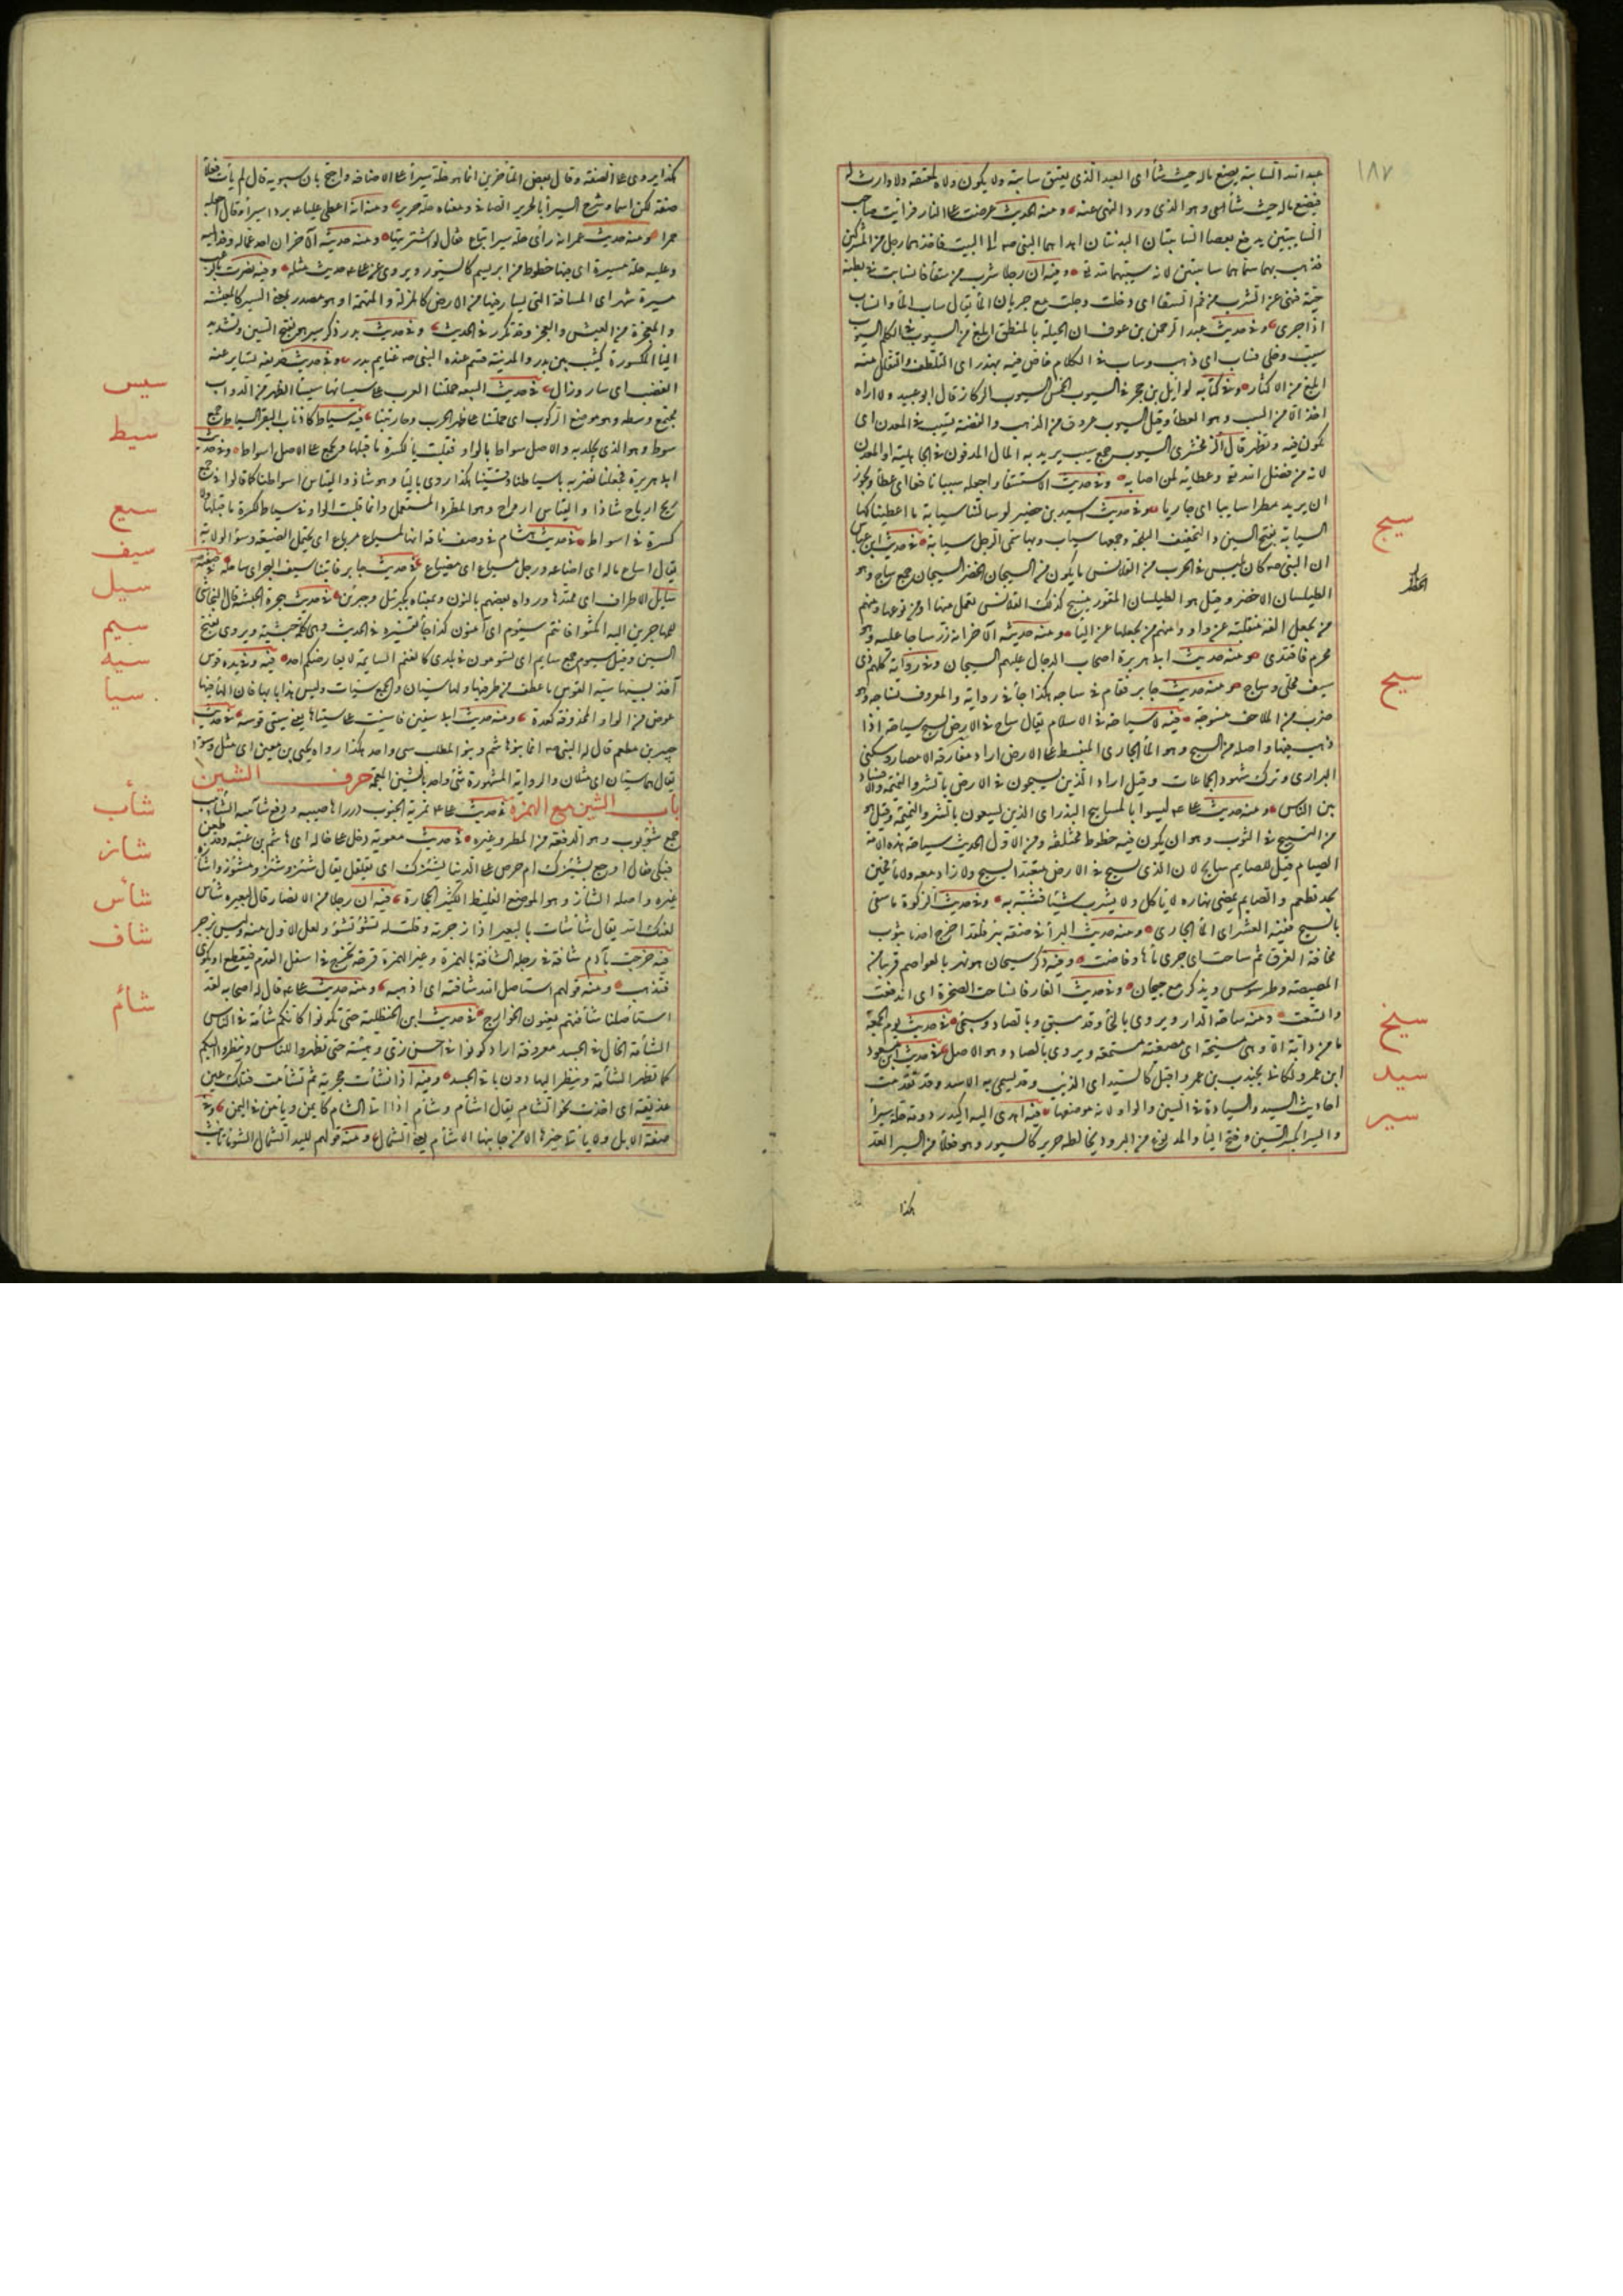 ١٨٧
عبد الله السايبة يضع ماله حيث شأ اى العبد الذى يعتق سايبة ولا يكون ولاه لمعتقه ولا وارث له
فيضع ماله حيث شأ وهو الذى ورد النهى عنه ومنه الحديث عرضت على النار فرأيت صاحب
السايبتين يدفع بعصا السايبتان البدنتان اهداهما النبى صم الى البيت فاخذهما رجل من المشركين
فذهب بهما سماهما سايبتين لانه سيبهما لله تع وفيه ان رجلا شرب من سقأ فانسابت فى بطنه
حية فنهى عن الشرب من فم السقأ اى دخلت وجلت مع جريان المأ يقال ساب المأ وانساب
اذا جرى وفى حديث عبد الرحمن بن عوف ان الحيلة بالمنطق ابلغ من السيوب فى الكلم السيوب
سيب وخلى فساب اى ذهب وساب فى الكلام خاض فيه بهذر اى التلطف والتقلل منه
ابلغ من الاكثار وفى كتابه لوايل بن حجر فى السيوب الخمس السيوب الركاز قال ابو عبيد ولا اراه
اخذ الا من السيب وهو العطأ وقيل السيوب عروق من الذهب والفضة تسيب فى المعدن اى
تكون فيه وتظهر قال الزمخشرى السيوب جمع سيب يريد به المال المدفون فى الجاهلية او المعدن
لانه من فضل الله تع وعطايه لمن اصابه وفى حديث الاستسقأ واجعله سيبا نافعا اى عطأ ويجوز
ان يريد مطرا سايبا اى جاريا وفى حديث اسيد بن حضير لو سالتنا سيابة ما اعطيناكها
السيابة بفتح السين والتخفيف البلحة وجمعها سياب وبها سمى الرجل سيابة فى حديث ابن عباس
سيج
ان النبى صم كان يلبس فى الحرب من القلانس ما يكون من السيجان الخضر السيجان جمع ساج وهو
الطيلسان الاخضر وقيل هو الطيلسان المقور ينسج كذلك القلانس تعمل منها او من نوعها ومنهم
من يجعل الفه منقلبة عن واو ومنهم من يجعلها عن اليأ ومنه حديثه الآخر انه زر ساجا عليه وهو
محرم فافتدى ومنه حديث ابى هريرة اصحاب الدجال عليهم السيجان وفى رواية كلهم ذى
سيف محلى وساج ومنه حديث جابر فقام فى ساجه هكذا جأ فى رواية والمعروف نساجه وهو
سيح
ضرب من الملاحف منسوجة فيه لا سياحة فى الاسلام يقال ساح فى الارض يسيح سياحة اذا
ذهب فيها واصله من السيح وهو المأ الجارى المنبسط على الارض اراد مفارقة الامصار وسكنى
البرارى وترك شهود الجماعات وقيل اراد الذين يسيحون فى الارض بالشر والنميمة والافساد
بين الناس ومنه حديث على عم ليسوا بالمساييح البذر اى الذين يسعون بالشر والنميمة وقيل هو
من التسييح فى الثوب وهو ان يكون فيه خطوط مختلفة ومن الاول الحديث سياحة هذه الامة
الصيام قيل للصايم سايح لان الذى يسيح فى الارض متعبدا يسيح ولا زاد معه ولا مأ فحين
يجد تطعم والصايم يمضى نهاره لا ياكل ولا يشرب شيئا فشبه به وفى حديث الزكوة ما سقى
بالسيح ففيه العشر اى المأ الجارى ومنه حديث البرأ فى صفة بئر فلقد اخرج احدنا بثوب
مخافة الغرق ثم ساحت اى جرى مأها وفاضت وفيه ذكر سيحان هو نهر بالعواصم قريبا من
المصيصة وطرسوس ويذكر مع جيحان وفى حديث الغار فانساحت الصخرة اى اندفعت
واتسعت ومنه ساحة الدار ويروى بالخأ وقد سبق وبالصاد وسيجى فى حديث يوم الجمعة
سيخ
ما من دابة الا وهى مسيخة اى مصغية مستمعة ويروى بالصاد وهو الاصل فى حديث ابن مسعود
سيد
ابن عمرو لكانى بجندب بن عمرو اقبل كالسيد اى الذئب وقد يسمى به الاسد وقد تقدمت
احاديث السيد والسيادة فى السين والواو لانه موضعها فيه اهدى اليه اكيدر دومة حلة سيرأ
سير
والسيرأ بكسر السين وفتح اليأ والمد نوع من البرود يخالطه حرير كالسيور وهو فعلأ من السير القد
هكذا
هكذا يروى على الصفة وقال بعض المتأخرين انما هو حلة سيرأ على الاضافة واحتج بان سيبويه قال لم يأت فعلأ
صفة لكن اسما وشرح السيرأ بالحرير الصافى ومعناه حلة حرير ومنه انه اعطى عليا عم بردا سيرأ وقال اجعله
خمرا ومنه حديث عمر انه رأى حلة سيرأ تباع فقال لو اشتريتها ومنه حديثه الآخر ان احد عماله وفد اليه
وعليه حلة مسيرة اى فيها خطوط من ابريسم كالسيور ويروى عن على عم حديث مثله وفيه نصرت بالرعب
مسيرة شهر اى المسافة التى يسار فيها من الارض كالمنزلة والمتهمة او هو مصدر بمعنى السير كالمعيشة
والمعجزة من العيش والعجز وقد تكرر فى الحديث وفى حديث بدر ذكر سير هو بفتح السين وتشديد
اليأ المكسورة كثيب بين بدر والمدينة قسم عنده النبى صم غنايم بدر وفى حديث حذيفة تساير عنه
سيس
الغضب اى سار وزال فى حديث البيعة حملتنا العرب على سيسائها سيسأ الظهر من الدواب
مجتمع وسطه وهو موضع الركوب اى حملتنا على ظهر الحرب وحاربتنا فيه سياط كاذناب البقر السياط جمع
سيط
سوط وهو الذى يجلد به والاصل سواط بالواو فقلبت يأ للكسرة ما قبلها ويجمع على الاصل اسواط وفى حديث
ابى هريرة فجعلنا نضربه باسياطنا وقسينا هكذا روى باليأ وهو شاذ والقياس اسواطنا كما قالوا فى جمع
ريح ارياح شاذا والقياس ارواح وهو المطرد المستعمل وانما قلبت الواو فى سياط للكسرة ما قبلها ولا
سيع
كسرة فى اسواط فى حديث هشام فى وصف ناقة انها لمسياع مرباع اى تحتمل الضيعة وسوء الولاية
سيف
يقال اساع ماله اى اضاعه ورجل مسياع اى مضياع فى حديث جابر فاتينا سيف البحر اى ساحله فى صفته صم
سيل
سايل الاطراف اى ممتدها ورواه بعضهم بالنون وبمعناه كجبريل وجبرين فى حديث هجرة الحبشة قال النجاشى
سيم
للمهاجرين اليه امكثوا فانتم سيوم اى آمنون كذا جأ تفسيره فى الحديث وهى كلمة حبشية ويروى بفتح
السين وقيل سيوم جمع سايم اى تسومون فى بلدى كالغنم السايمة لا يعارضكم احد فيه وفى يده قوس
سيه
آخذ بسيتها سية القوس ما عطف من طرفيها ولها سيتان والجمع سيات وليس هذا بابها فان الهأ فيها
عوض من الواو المحذوفة كعدة ومنه حديث ابى سفين فانثنت على سيتاها يعنى سيتى قوسه فى حديث
سيا
جبير بن مطعم قال له النبى صم انما بنو هاشم وبنو المطلب سى واحد هكذا رواه يحيى بن معين اى مثل وسوأ
يقال هما سيان اى مثلان والرواية المشهورة شئ واحد بالشين المعجمة حرف الشين
باب الشين مع الهمزة فى حديث على عم تمريه الجنوب درر اهاضيبه ودفع شآبيبه الشآبيب
شأب
جمع شؤبوب وهو الدفعة من المطر وغيره فى حديث معوية دخل على خاله ابى هاشم بن عتبة وقد طعن
شأز
فبكى فقال اوجع يشئزك ام حرص على الدنيا يشئزك اى يقلقل يقال شئز وشئز ومشئوز واشأزه
غيره واصله الشأز وهو الموضع الغليظ الكثير الحجارة فيه ان رجلا من الانصار قال لبعيره شأ
شأس
لعنك الله يقال شأشأت بالبعير اذا زجرته وقلت له تشؤ تشؤ ولعل الاول منه وليس بزجر
شأف
فيه خرجت بآدم شأفة فى رجله الشأفة بالهمزة وغير الهمزة قرحة تخرج فى اسفل القدم فيقطع او يكوى
فتذهب ومنه قولهم استاصل الله شأفته اى اذهبه ومنه حديث على عم قال له اصحابه لقد
شأم
استأصلنا شأفتهم يعنون الخوارج فى حديث ابن الحنظلية حتى تكونوا كانكم شأمة فى الناس
الشأمة الخال فى الجسد معروفة اراد كونوا فى احسن زى وهيئة حتى تظهروا للناس وينظروا اليكم
كما تظهر الشأمة وينظر اليها دون باقى الجسد ومنه اذا نشأت بحرية ثم تشأمت فتلك عين
غديقة اى اخذت نحو الشام يقال اشأم وشأم اذا اتى الشام كايمن ويامن فى اليمن وفى
صفة الابل ولا يأتى خيرها الا من جانبها الاشأم يعنى الشمال ومنه قولهم لليد الشمال الشؤمى تانيث